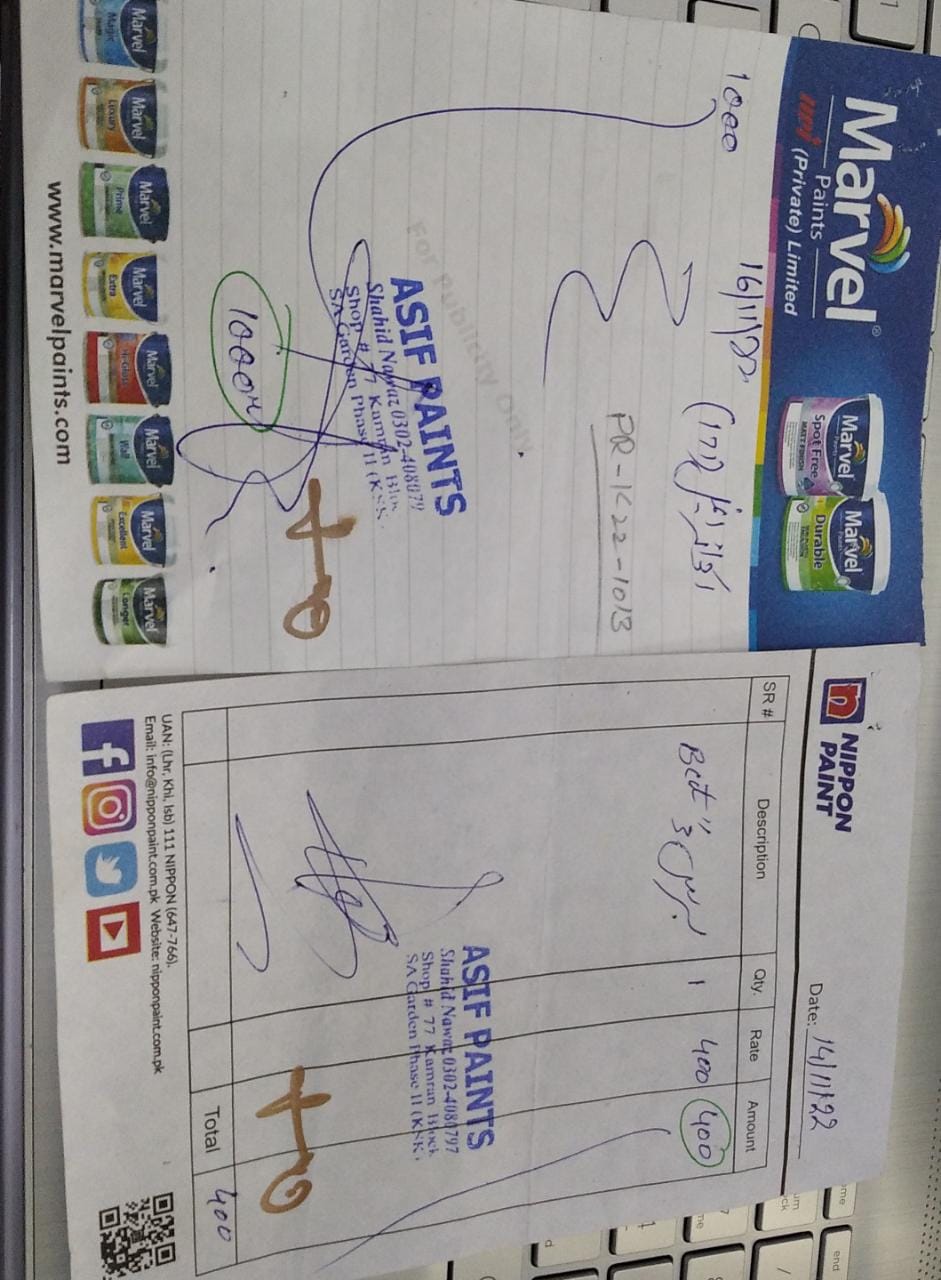 Marvel
Paints
(Private) Limited
Marvel
Spot Free
MATT FINISH
Marvel
Durable
16/11/22
1000
PR-1K22-1013
For Publicity Only.
ASIF PAINTS
Shahid Nawaz 0302-408079
Shop # 77 Kamran Bloc
SA Garden Phase II (KSK.
1000
Marvel
Magic
Marvel
Luxury
Marvel
Prime
Marvel
Extra
Marvel
Hi-Gloss
Marvel
Wall
Marvel
Excellent
Marvel
Longer
www.marvelpaints.com
n NIPPON
PAINT
Date: 14/11/22
SR # Description Qty. Rate Amount
Best 3" 1 400 400
ASIF PAINTS
Shahid Nawaz 0302-4080797
Shop # 77 Kamran Block
SA Garden Phase II (KSK)
Total 400
UAN: (Lhr, Khi, Isb) 111 NIPPON (647-766),
Email: info@nipponpaint.com.pk Website: nipponpaint.com.pk
end